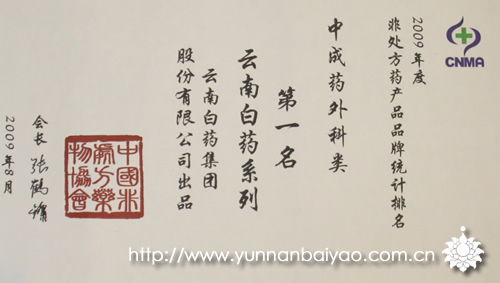 CNMA
2009年度
非处方药产品品牌统计排名
中成药外科类
第一名
云南白药系列
云南白药集团
股份有限公司出品
中國非處方藥物協會
会长 张鹤镛
2009年8月
http://www.yunnanbaiyao.com.cn